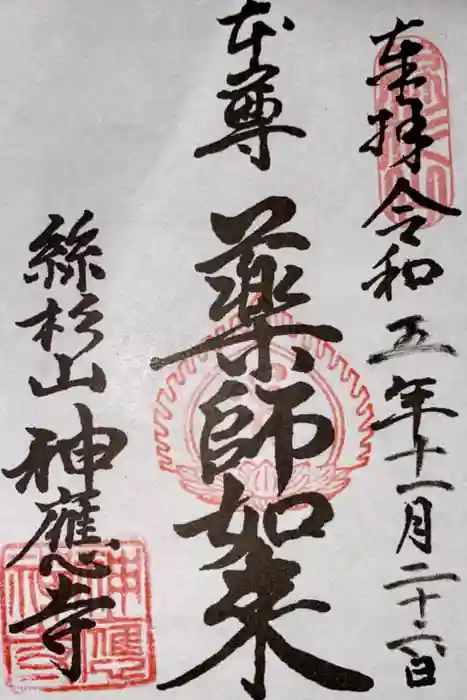 奉拝令和五年十一月二十六日
本尊
薬師如来
絲杉山神應寺